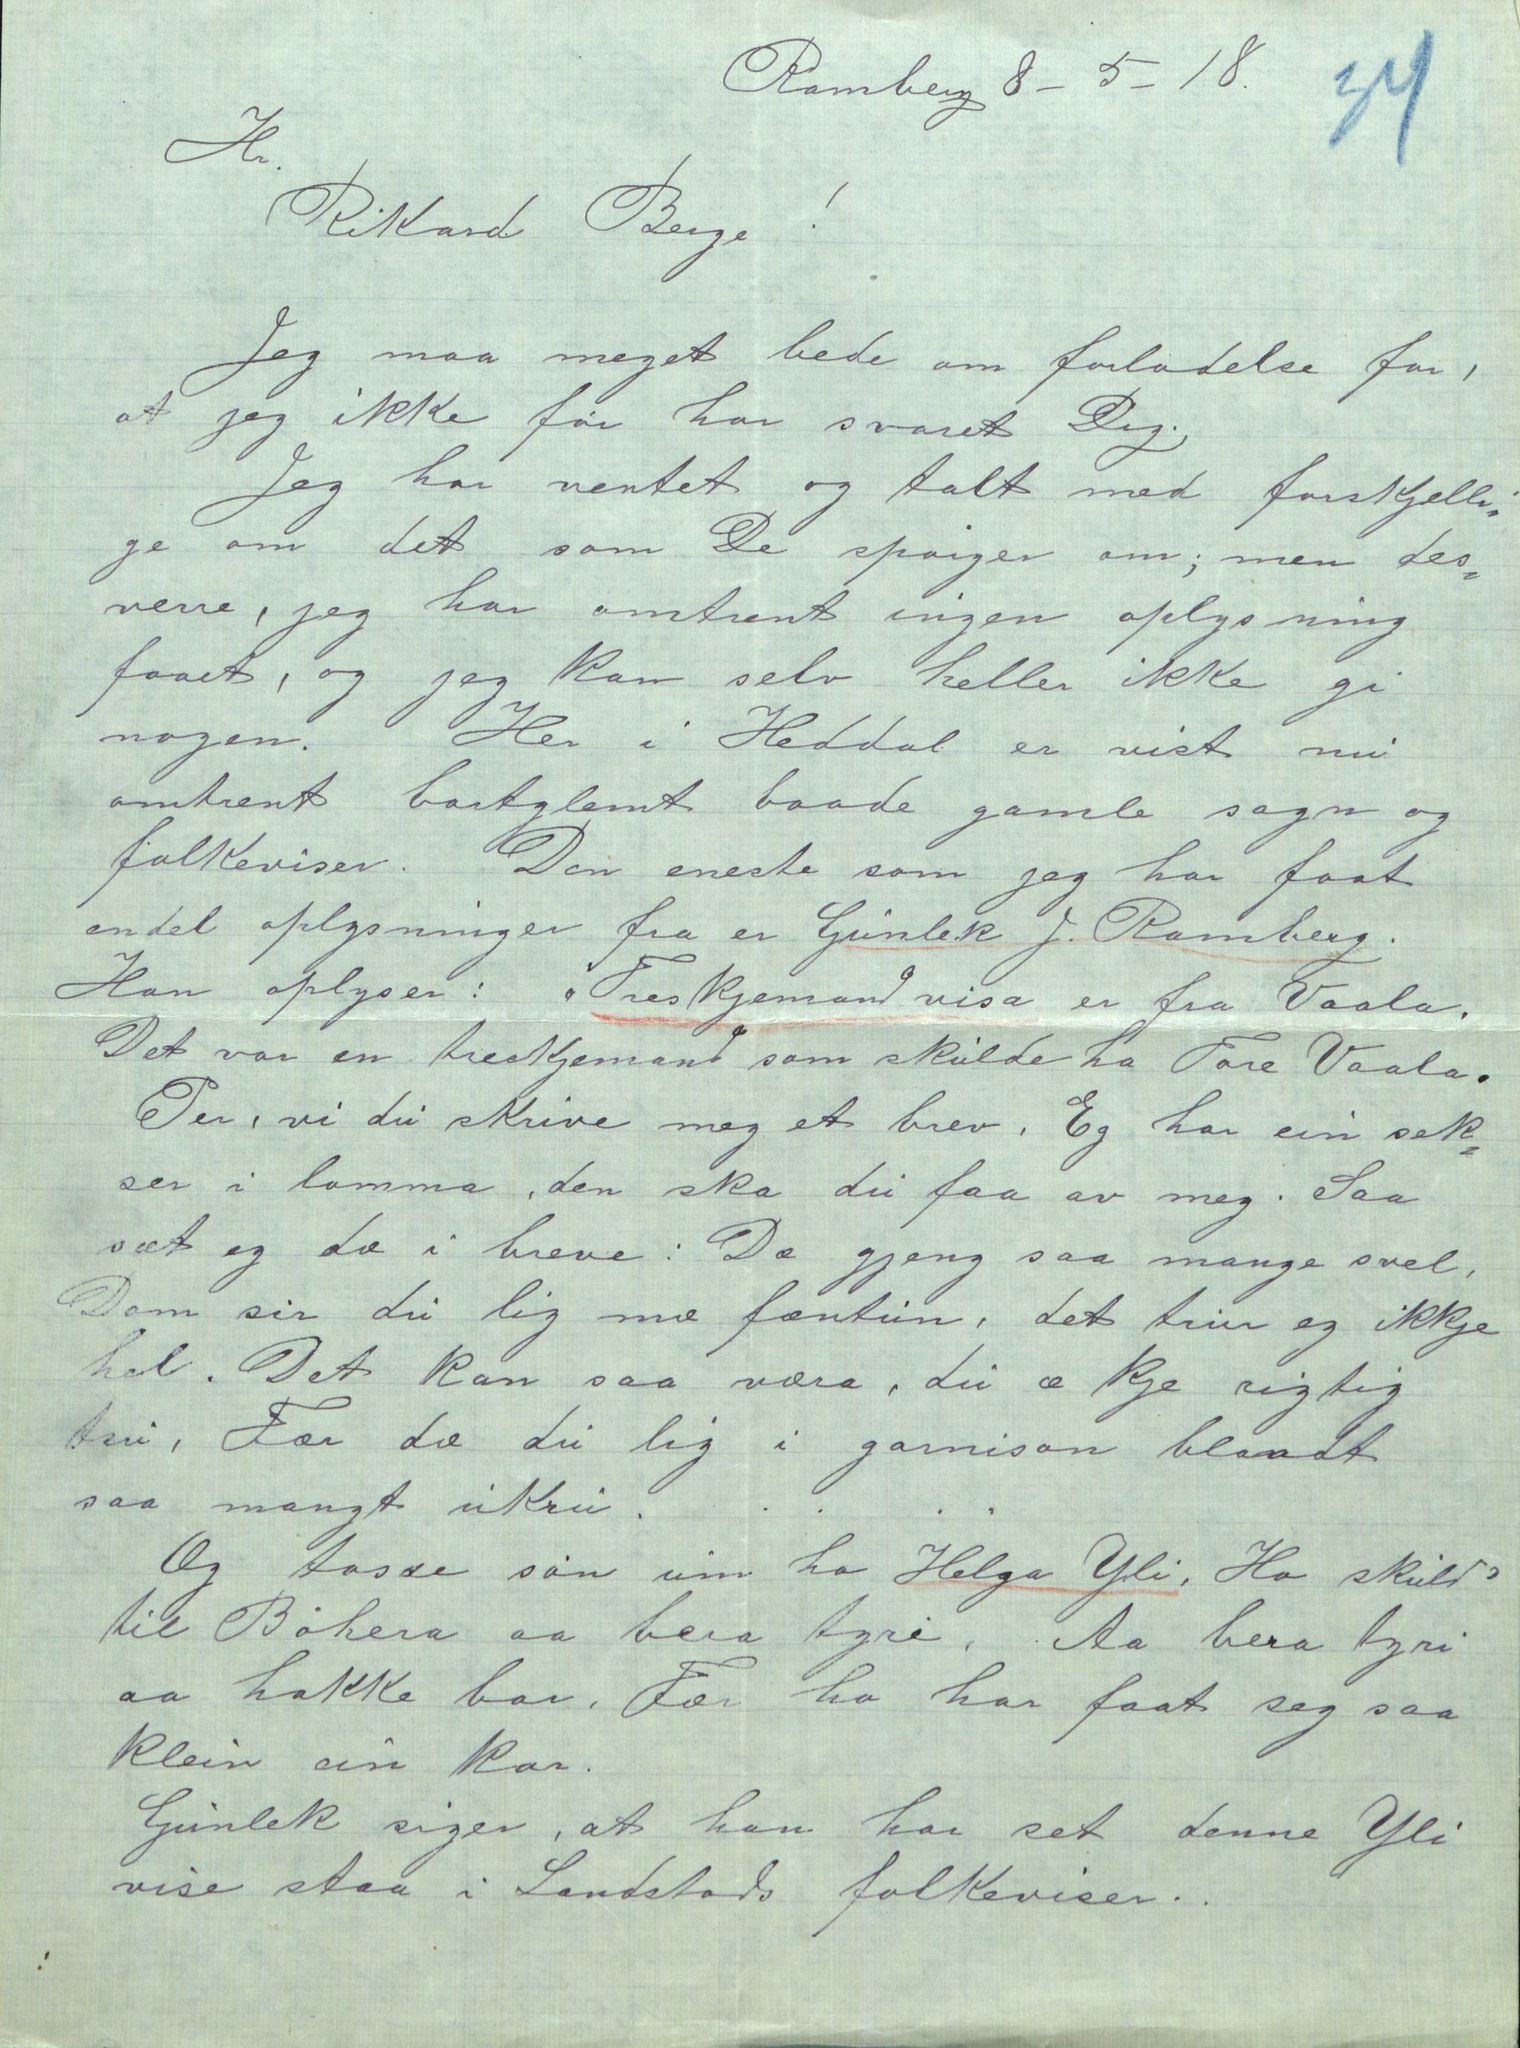 Ramberg 8-5-18.
34
Hr.
Rikard Berge!
Jeg maa meget bede om forladelse for,
at jeg ikke før har svaret Dig.
Jeg har ventet og talt med forskjelli-
ge om det som De spørger om; men des-
verre, jeg har omtrent ingen oplysning
faaet, og jeg kan selv heller ikke gi
nogen. Her i Heddal er vist nu
omtrent bortglemt baade gamle sagn og
folkeviser. Den eneste som jeg har faat
endel oplysninger fra er Gunlek J. Ramberg.
Han oplyser: Treskjemandvisa er fra Vaala.
Det var en treskjemand som skulde ha Tore Vaala.
Per, vi du skrive meg et brev, Eg har ein sek-
ser i lomma, den ska du faa av meg. Saa
sæt eg dæ i breve: Dæ gjeng saa mange svel,
Dom sir du lig mæ fæntun, det trur eg ikkje
hel. Det kan saa være, du æ kje rigtig
tru, Fær dæ du lig i garnison blandt
saa mangt ukru. . . .
Og tasse søn um ho Helga Yli, Ho skuld
til Bøhera aa bera tyri, Aa bera tyri
aa hakke bar, Fær ho har faat seg saa
klein ein kar.
Gunlek siger, at han har set denne Yli
vise staa i Landstads folkeviser.